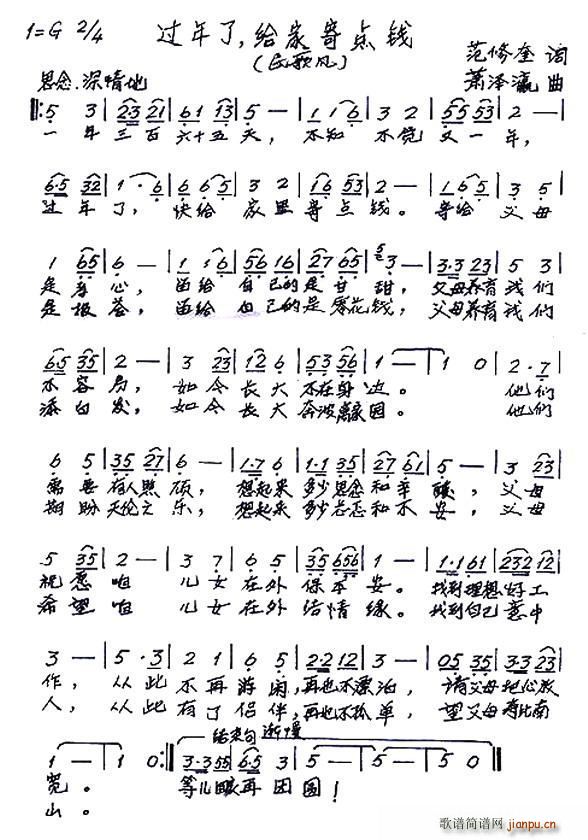 1=G 2/4 过年了,给家寄点钱
(民歌风)
范修奎 词
思念.深情地
萧泽瀛 曲
‖: 5 3 | 23 21 | 61 13 | 5 — | 1 1 6 | 3 2 | 55 53 | 2 — |
一年三百六十五天, 不知不觉又一年,
65 32 | 1 · 6 | 6 6 5 | 3 2 | 16 53 | 2 — | 1 6 5 | 3 5 |
过年了, 快给家里寄点钱。 寄给父母
1 65 | 6 — | 1 16 | 56 16 | 27 65 | 3 — | 3·3 23 | 5 3 |
是孝心, 留给自己的是甘甜, 父母养育我们
是报答, 留给自己的是零花钱, 父母养育我们
65 35 | 2 — | 3 23 | 12 6 | 53 56 | 1 — | 1 0 | 2 · 7 |
不容易, 如今长大不在身边。 他们
添白发, 如今长大奔波离家园。 他们
6 5 | 35 27 | 6 — | 1·7 6 | 1·1 35 | 27 61 | 5 — | 3 23 |
需要有人照顾, 想起来多少思念和辛酸, 父母
期盼天伦之乐, 想起来多少忐忑和不安, 父母
5 35 | 2 — | 3 7 | 6 5 | 35 656 | 1 — | 1·1 61 | 232 12 |
祝愿咱儿女在外保平安。 找到理想好工
希望咱儿女在外结情缘。 找到自己意中
3 — | 5 · 3 | 2 1 | 6 5 | 2·2 12 | 3 — | 05 35 | 3·3 23 |
作, 从此不再游闲,再也不漂泊, 请父母把心放
人, 从此有了侣伴,再也不孤单, 望父母寿比南
结束句 渐慢
1 — | 1 0 :‖ 3·3 55 | 65 3 | 5 — | 5 — | 5 0 ‖
宽。 等儿归再团圆!
山。
歌谱简谱网
jianpu.cn